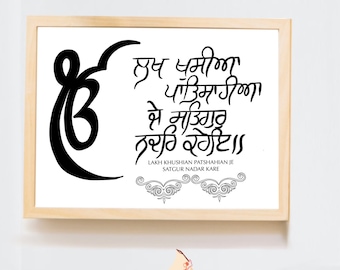 ੴ
ਲਖ ਖੁਸੀਆ
ਪਾਤਿਸਾਹੀਆ
ਜੇ ਸਤਿਗੁਰੁ
ਨਦਰਿ ਕਰੇਇ॥
LAKH KHUSHIAN PATSHAHIAN JE
SATGUR NADAR KARE